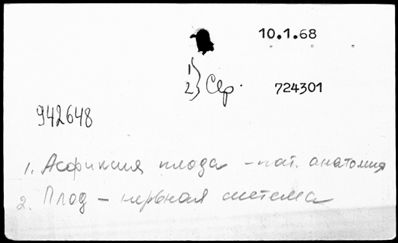 10.1.68
1)
2) Сер.
724301
942648
1. Асфиксия плода – пат. анатомия
2. Плод – нервная система